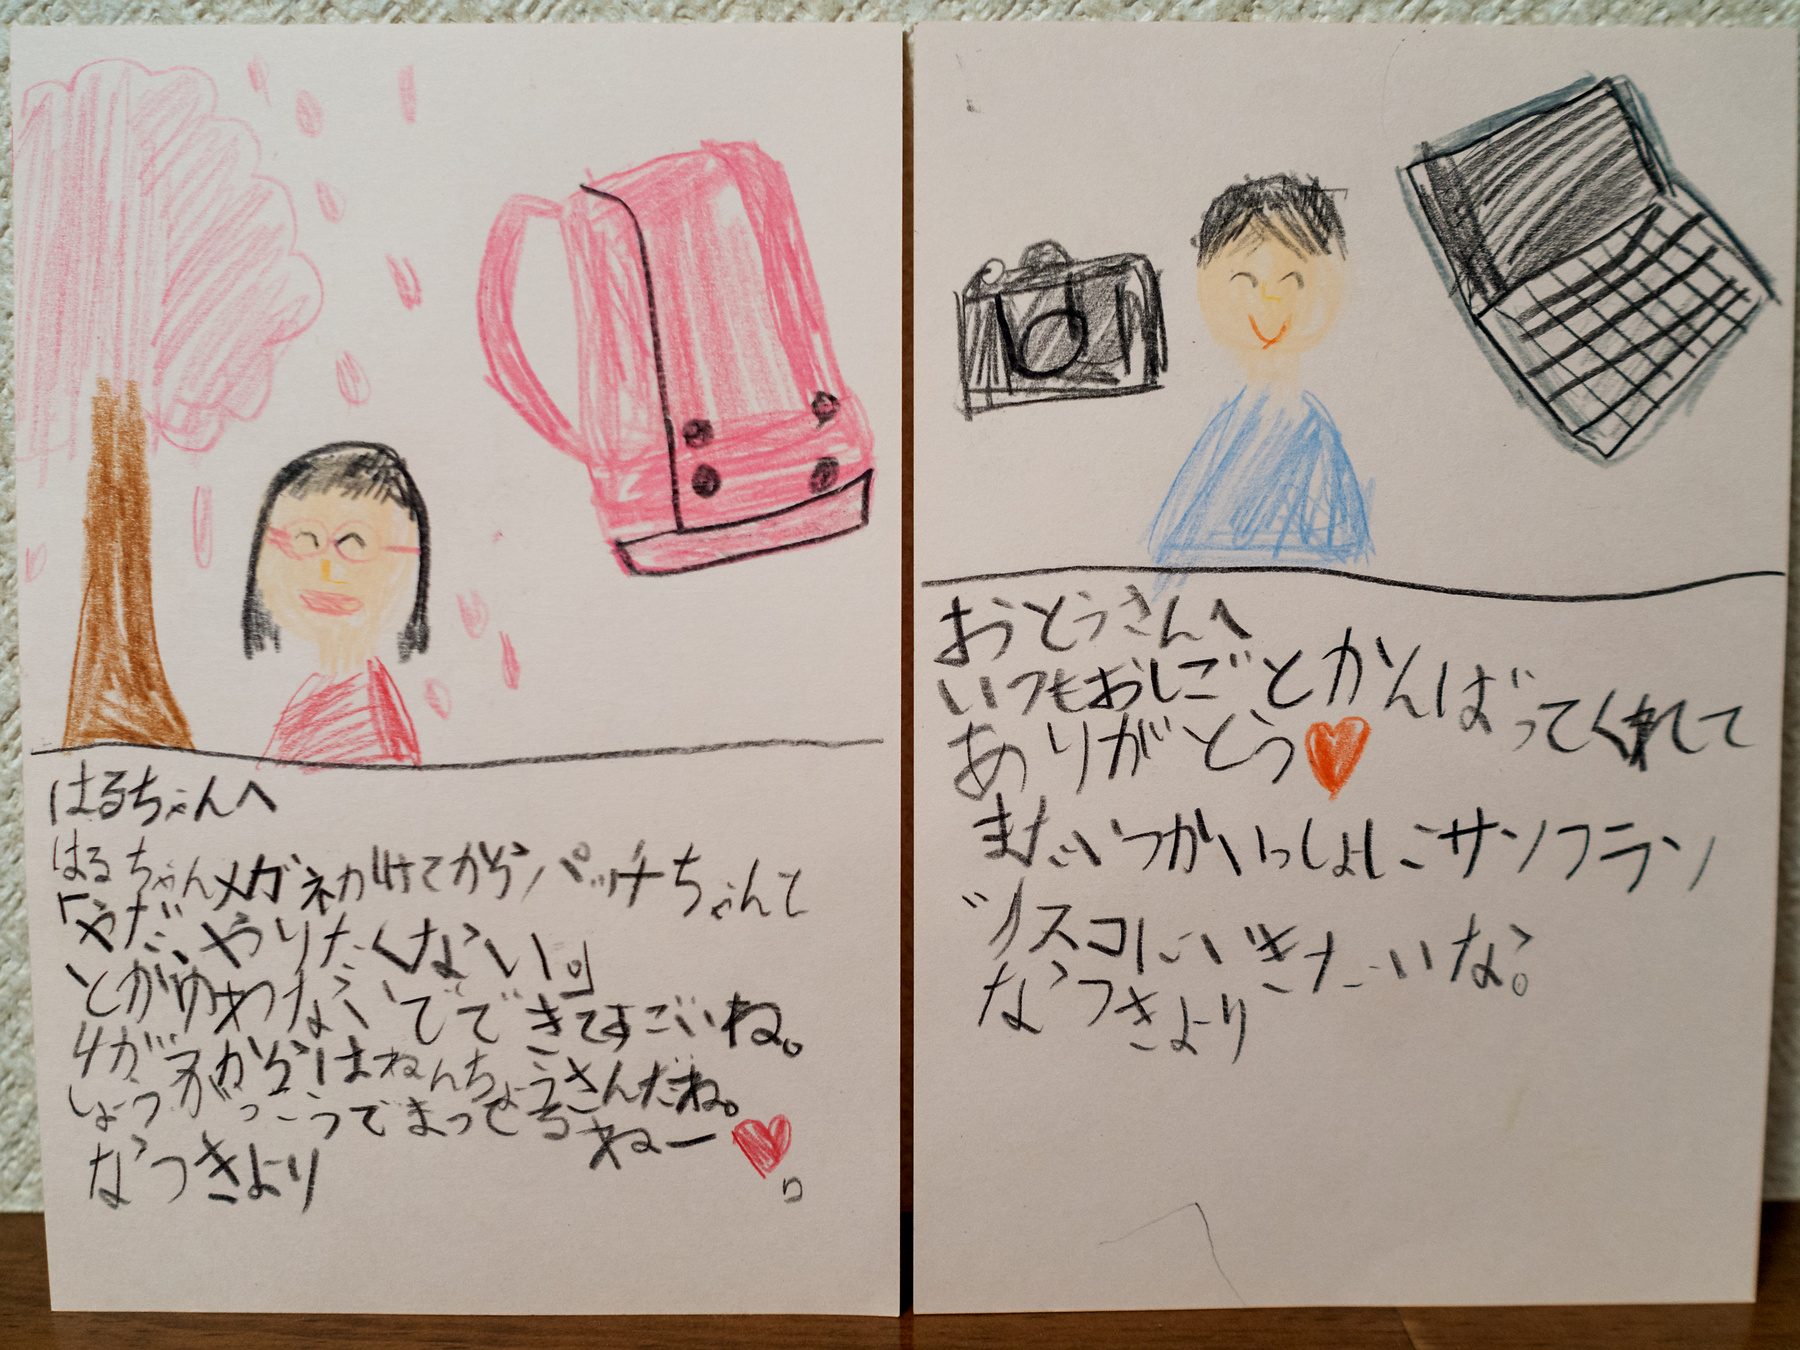 はるちゃんへ
はるちゃんメガネかけてからパッチちゃんと
「やだ、やりたくない。」
とかゆわないでできてすごいね。
4がつからはねんちょうさんだね。
しょうがっこうでまってるねー
なつきより
おとうさんへ
いつもおしごとかんばってくれて
ありがとう
またいつかいっしょにサンフラン
ツスコにいきたいな。
なつきより